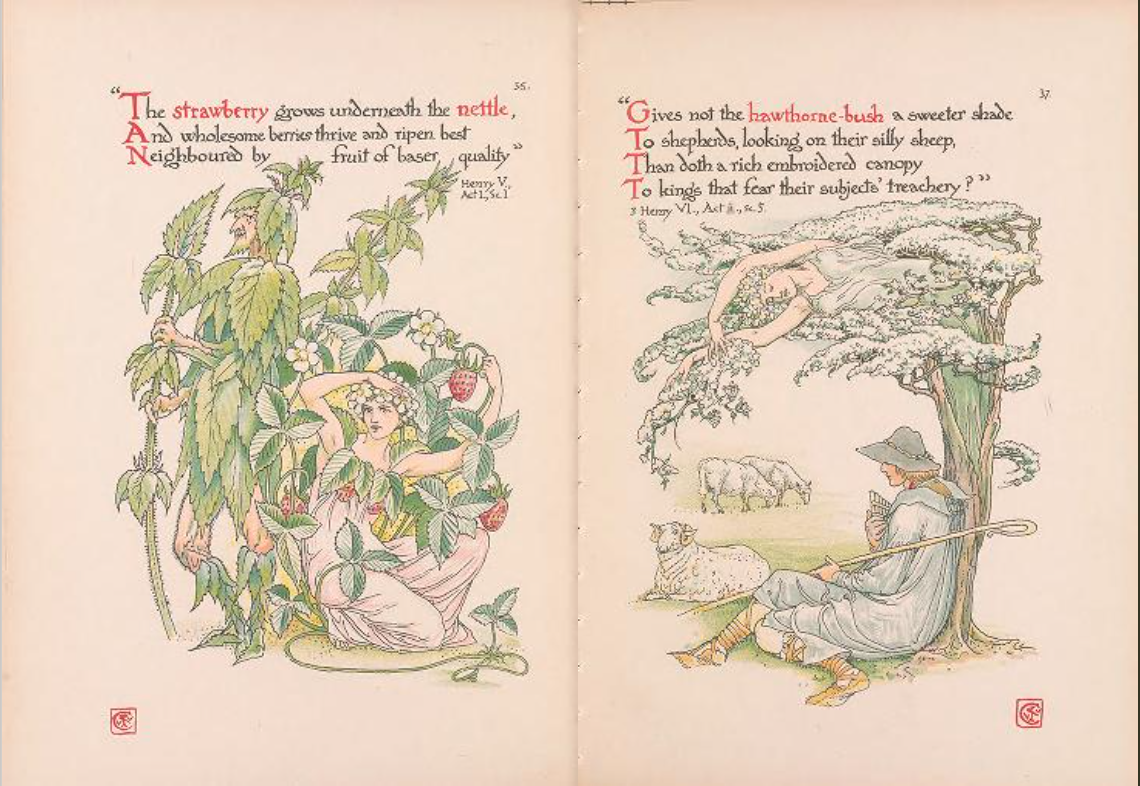 36.
“The strawberry grows underneath the nettle,
And wholesome berries thrive and ripen best
Neighboured by fruit of baser quality”
Henry V,
Act 1, Sc. 1.
37
“Gives not the hawthorne-bush a sweeter shade
To shepherds, looking on their silly sheep,
Than doth a rich embroidered canopy
To kings that fear their subjects’ treachery?”
3 Henry VI., Act ii., sc. 5.